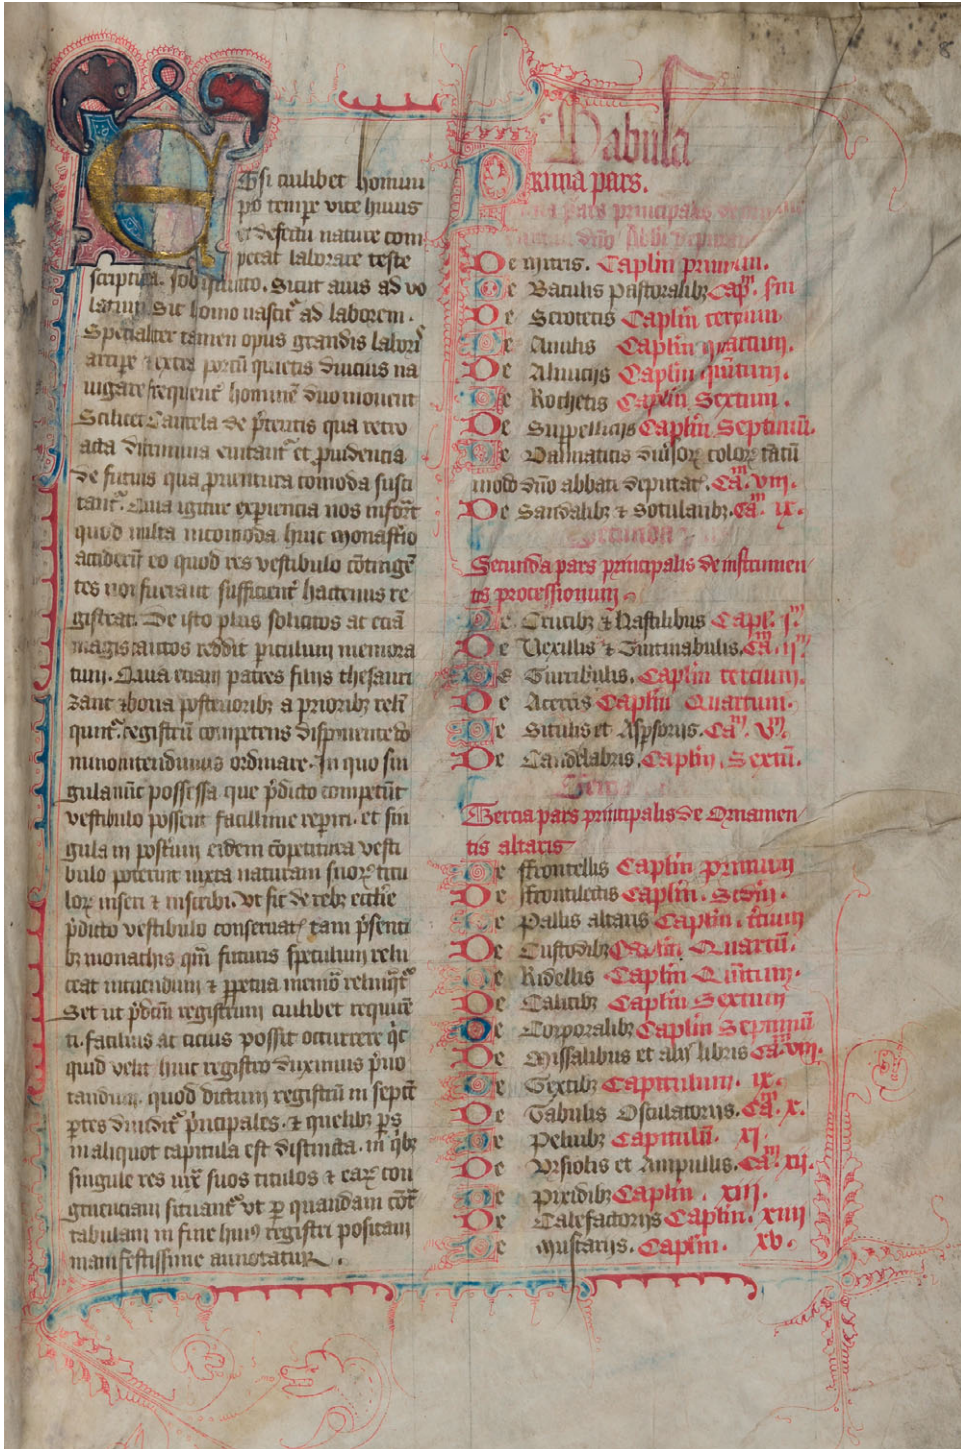 Etsi cuilibet homini
pro tempore vite huius
et defectu nature com
petat laborare teste
scriptura. Job quinto. Sicut auis ad vo
latum sic homo nascitr ad laborem.
Specialiter tamen opus grandis laboris
arripe & extra portū quietis diucius na
uigare frequent hominē duo mouent
Scilicet Cautela de pteritis qua retro
acta discrimina euitantr et prouidencia
de futuris qua profutura comoda susci
tantr. Quia igitur experiencia nos informt
quod multa incomoda huic monastrio
acciderūt eo quod res vestibulo cōtingē
tes non fuerant sufficient hactenus re
gistrat. De isto plus solicitos ac eciā
magis cautos reddit periculum memora
tum. Quia eciam patres filiis thesauri
zant & bona posterioribz a prioribz reli
quntr. registrū competens disponente do
mino intendimus ordinare. In quo sin
gula nūc possessa que pdicto competūt
vestibulo possent facillime reperiri. et sin
gula in posterum eidem cōpetitura vesti
bulo poterunt iuxta naturam suorum titu
lorum inseri & inscribi. Vt sic de rebz ecclie
pdicto vestibulo conseruat tam psenti
bz monachis qm futuris speculum relu
ceat iucundum & perpetua memor relinqtr
Set ut pdcm registrum cuilibet requirē
ti. facilius ac cicius possit occurrere qc
quid velit huic registro duximus pno
tandum. quod dictum registrū in septē
ptes diuiditr principales. & quelibz ps
in aliquot capitula est distincta. in qbz
singule res iux suos titulos & earum con
gruenciam situantr vt per quandam
tabulam in fine huius registri positam
manifestissime annotatur.
Tabula
Prima pars.
De mitris. Capłm primum.
De Baculis pastoralibz Capm. sm
De Scirotecis Capłm tercium
De Anulis Capłm quartum.
De Almiciis Capłm quītum.
De Rochetis Capłm Sextum.
De Suppelliciis Capłm Septimū.
De Dalmaticis diusorum colorum tantū
modo dno abbati deputat. Cam. viii.
De Sandalibz & Sotularibz. Cam. ix.
Secunda pars principalis de instrumen
tis processionum
De Crucibz & Hastilibus Capł. im
De Vexillis & Tintinabulis. Cam. iim
De Turribulis. Capłm tercium.
De Acerris Capłm Quartum.
De Situlis et Aspsoriis. Cam. vm.
De Candelabris. Capłm. Sextū.
Tercia pars principalis de Ornamen
tis altaris
De ffrontellis Capłm primum
De ffrontilectis Capłm. Scdm.
De Pallis altaris Capłm. tcium
De Custodibz Capłm. Quartū.
De Ridellis Capłm Quītum.
De Calicibz Capłm Sextum
De Corporalibz Capłm Septimū
De Missalibus et aliis libris Cam. viii.
De Textibz Capitulum. ix.
De Tabulis Osculatoriis. Cam. x.
De Peluibz Capitulū. xi.
De Vrsiolis et Ampullis. Cam. xii.
De Pixidibz Capłm. xiii.
De Calefactoriis Capłm. xiiii
De Mustariis. Capłm. xv.
8